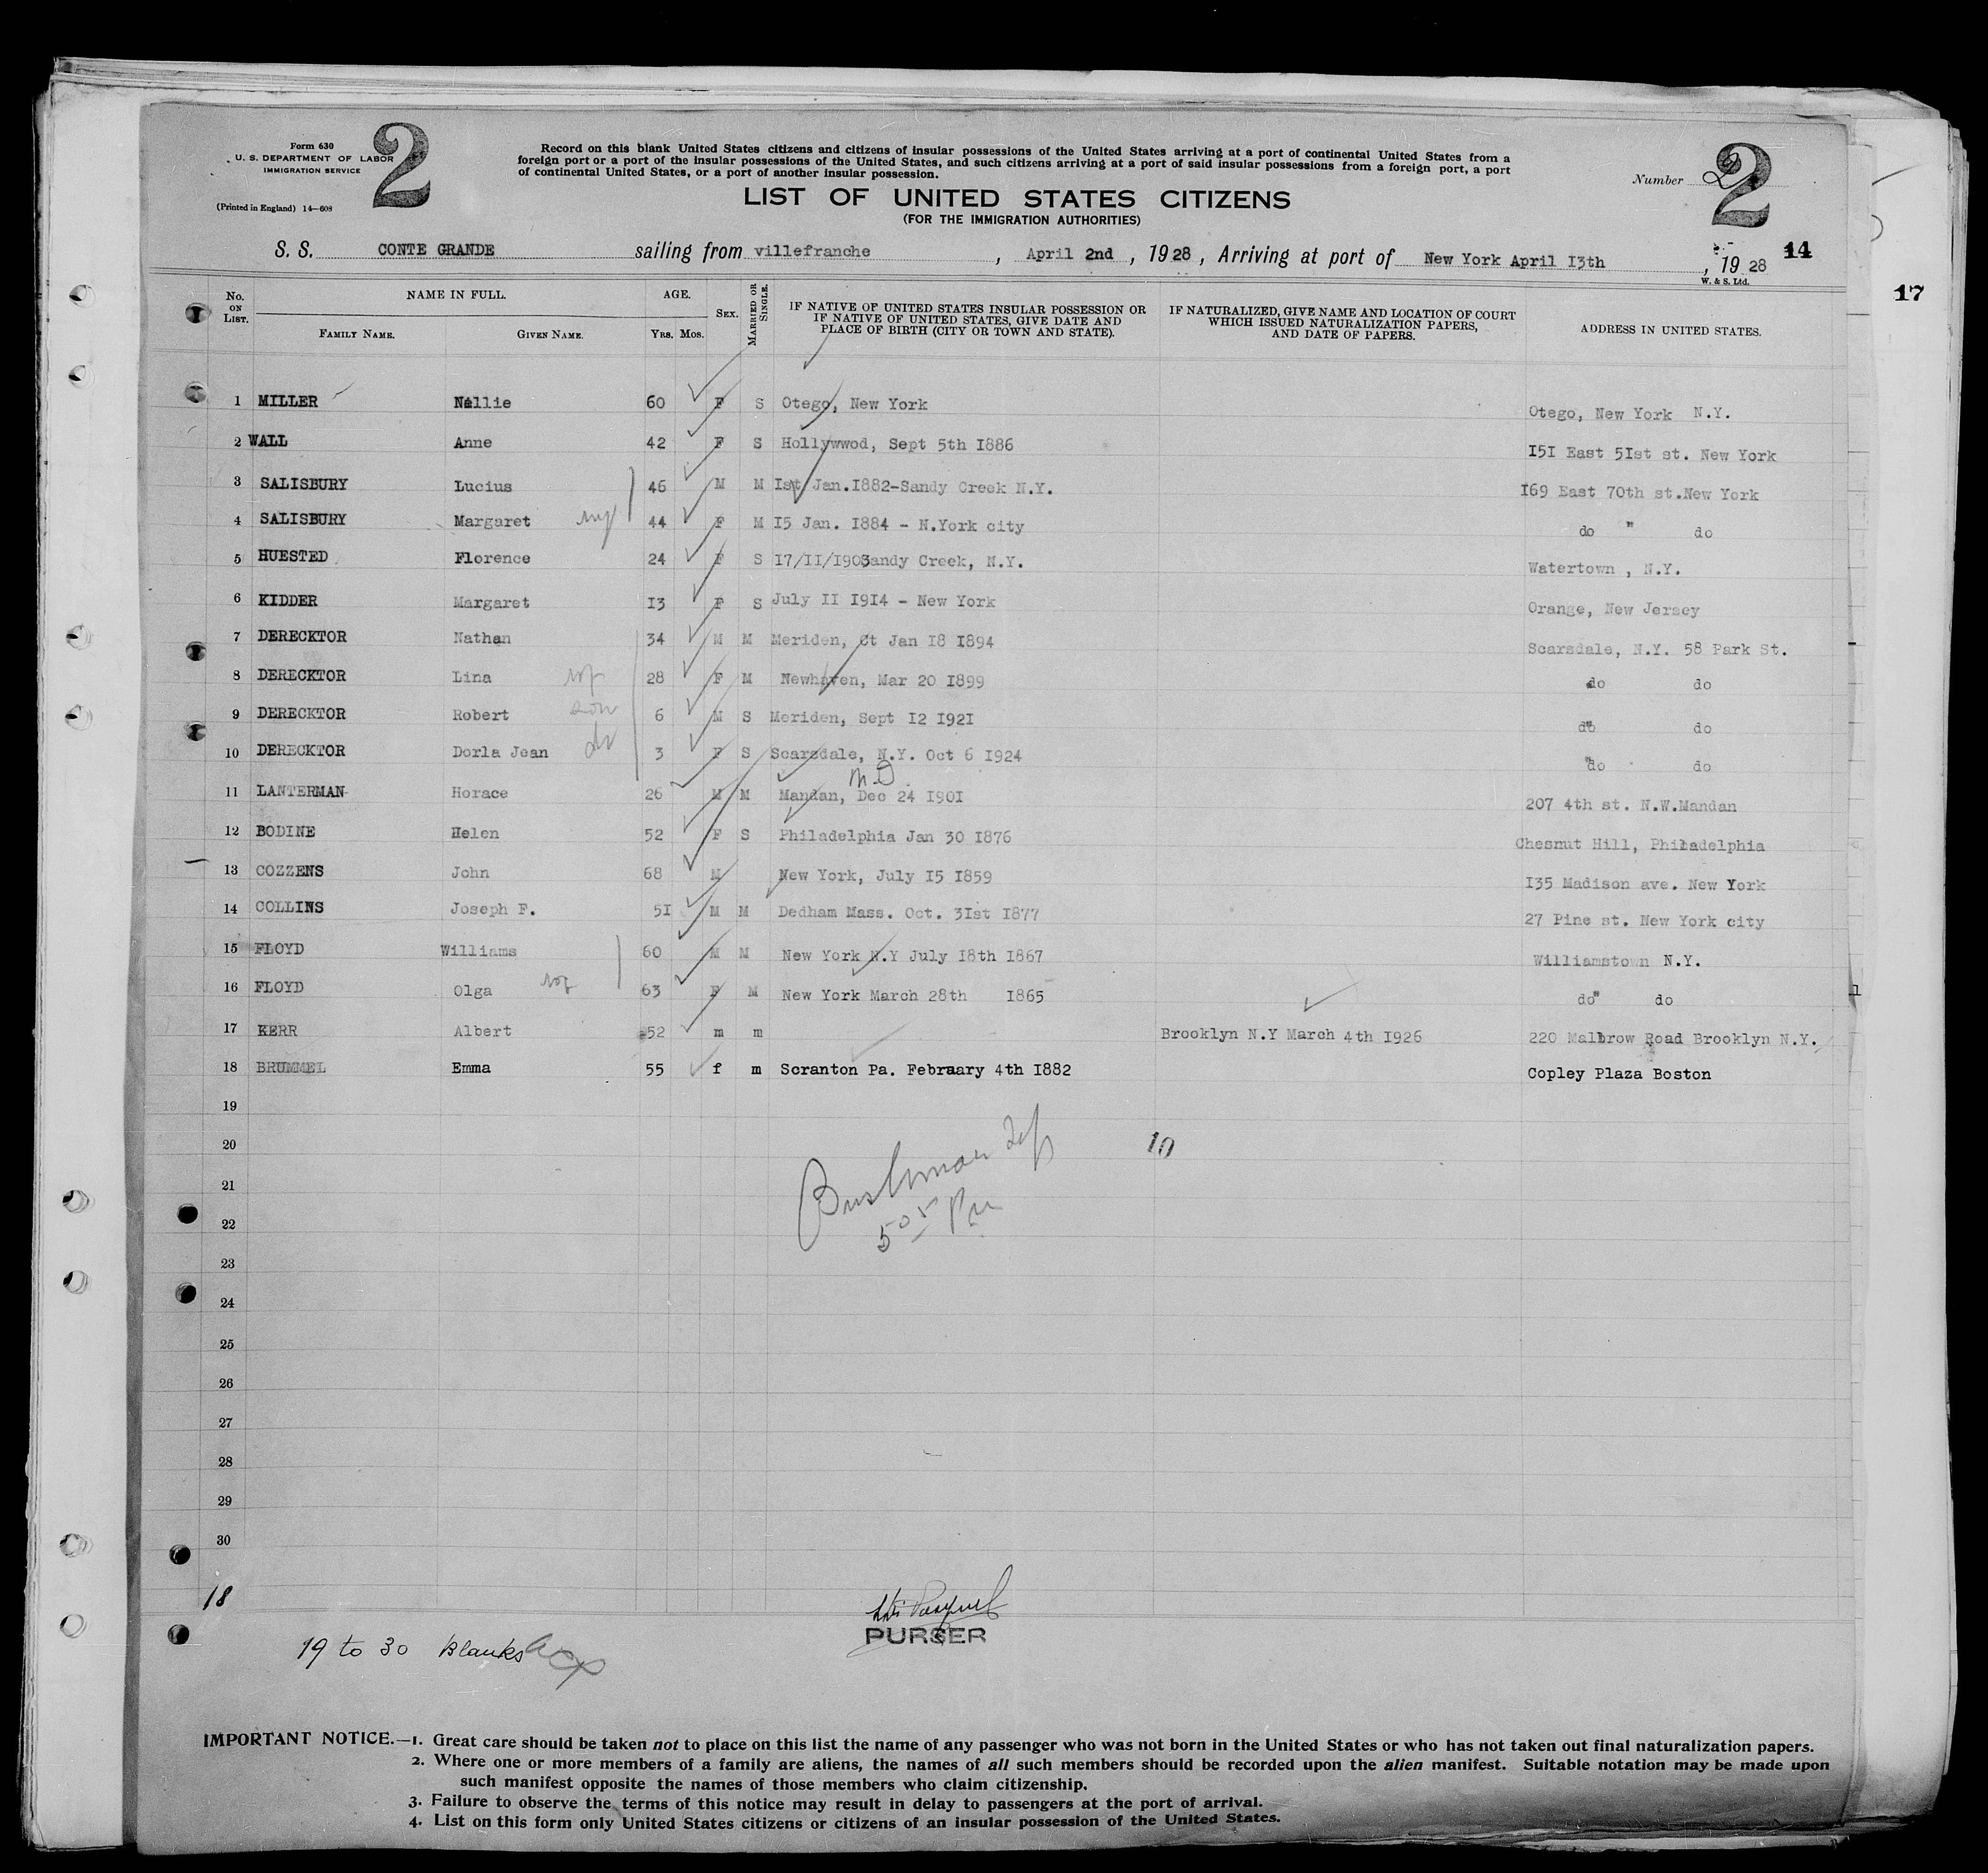 Form 630
U. S. DEPARTMENT OF LABOR
IMMIGRATION SERVICE
(Printed in England) 14—608
2
Record on this blank United States citizens and citizens of insular possessions of the United States arriving at a port of continental United States from a
foreign port or a port of the insular possessions of the United States, and such citizens arriving at a port of said insular possessions from a foreign port, a port
of continental United States, or a port of another insular possession.
LIST OF UNITED STATES CITIZENS
(FOR THE IMMIGRATION AUTHORITIES)
Number 2
2
S. S. CONTE GRANDE sailing from villefranche , April 2nd , 1928 , Arriving at port of New York April I3th , 1928
14
W. & S. Ltd.
17
No. ON LIST. NAME IN FULL. FAMILY NAME. GIVEN NAME. AGE. YRS. MOS. SEX. MARRIED OR SINGLE. IF NATIVE OF UNITED STATES INSULAR POSSESSION OR IF NATIVE OF UNITED STATES, GIVE DATE AND PLACE OF BIRTH (CITY OR TOWN AND STATE). IF NATURALIZED, GIVE NAME AND LOCATION OF COURT WHICH ISSUED NATURALIZATION PAPERS, AND DATE OF PAPERS. ADDRESS IN UNITED STATES.
1 MILLER Nellie 60 F S Otego, New York Otego, New York N.Y.
2 WALL Anne 42 F S Hollywwod, Sept 5th I886 I5I East 5Ist st. New York
3 SALISBURY Lucius 46 M M Ist Jan.I882-Sandy Creek N.Y. I69 East 70th st.New York
4 SALISBURY Margaret 44 F M I5 Jan. I884 - N.York city do " do
5 HUESTED Florence 24 F S I7/II/I903Sandy Creek, N.Y. Watertown , N.Y.
6 KIDDER Margaret I3 F S July II I9I4 - New York Orange, New Jersey
7 DERECKTOR Nathan 34 M M Meriden, Ct Jan I8 I894 Scarsdale, N.Y. 58 Park St.
8 DERECKTOR Lina 28 F M Newhaven, Mar 20 I899 do do
9 DERECKTOR Robert son 6 M S Meriden, Sept I2 I92I do do
10 DERECKTOR Dorla Jean 3 F S Scarsdale, N.Y. Oct 6 I924 do do
11 LANTERMAN Horace 26 M M Mandan, Dec 24 I90I 207 4th st. N.W.Mandan
12 BODINE Helen 52 F S Philadelphia Jan 30 I876 Chesnut Hill, Philadelphia
13 COZZENS John 68 M New York, July I5 I859 I35 Madison ave. New York
14 COLLINS Joseph F. 5I M M Dedham Mass. Oct. 3Ist I877 27 Pine st. New York city
15 FLOYD Williams 60 M M New York N.Y July I8th I867 Williamstown N.Y.
16 FLOYD Olga 63 F M New York March 28th I865 do" do
17 KERR Albert 52 m m Brooklyn N.Y March 4th I926 220 Malbrow Road Brooklyn N.Y.
18 BRUMMEL Emma 55 f m Scranton Pa. February 4th I882 Copley Plaza Boston
19
20 10
21
22
23
24
25
26
27
28
29
30
18
PURSER
19 to 30 Blanks
IMPORTANT NOTICE.—1. Great care should be taken not to place on this list the name of any passenger who was not born in the United States or who has not taken out final naturalization papers.
2. Where one or more members of a family are aliens, the names of all such members should be recorded upon the alien manifest. Suitable notation may be made upon
such manifest opposite the names of those members who claim citizenship.
3. Failure to observe the terms of this notice may result in delay to passengers at the port of arrival.
4. List on this form only United States citizens or citizens of an insular possession of the United States.